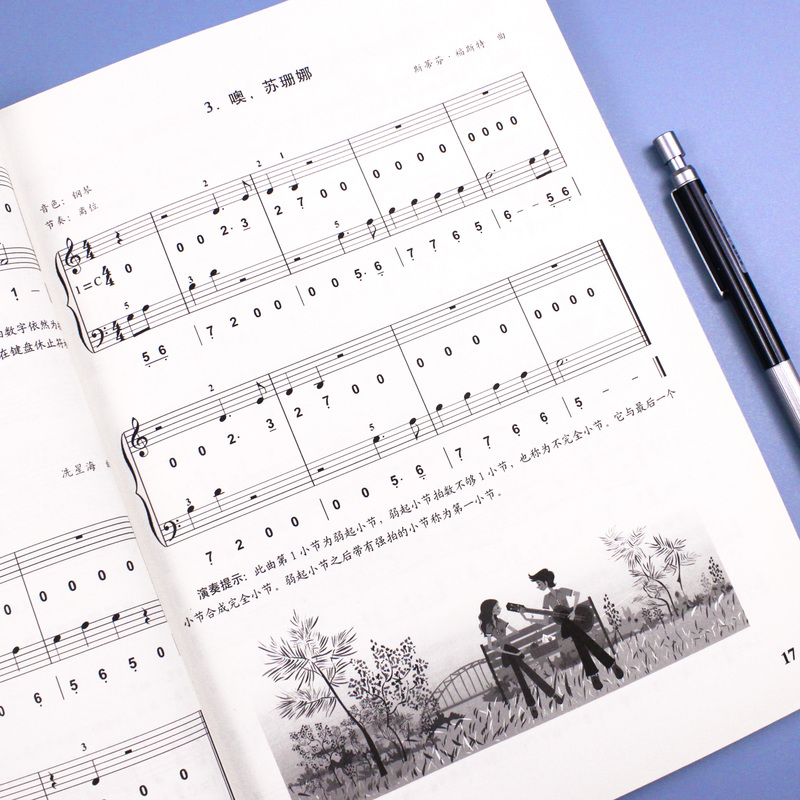 3. 噢，苏珊娜
斯蒂芬·福斯特 曲
音色：钢琴
节奏：离位
2 2 1
4 4
1=C 4 4 0 0 0 2· 3 2 7 0 0 0 0 0 0 0 0 0 0
5 3 5
5 6 7 2 0 0 0 0 5· 6 7 7 6 5 6 – – 5 6
2
0 0 2· 3 2 7 0 0 0 0 0 0 0 0 0 0
3 5
7 2 0 0 0 0 5· 6 7 7 6 6 5 – –
演奏提示：此曲第1小节为弱起小节，弱起小节拍数不够1小节，也称为不完全小节。它与最后一个
小节合成完全小节。弱起小节之后带有强拍的小节称为第一小节。
17
数字依然为
在键盘休止符
冼星海
0 0 0 0 0
0 6 5 6 5 0
3
0 0